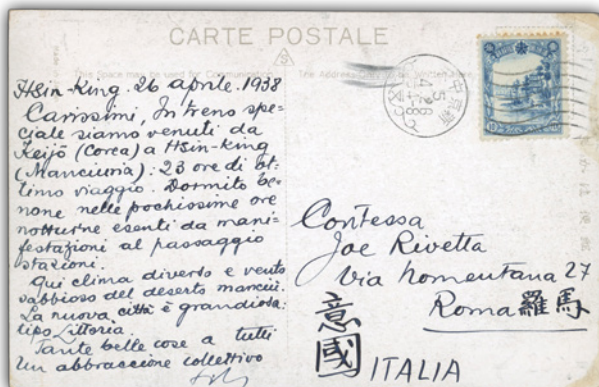 CARTE POSTALE
This Space may be used for Communication
The Address Only to be Written Here
HSin-King. 26 aprile. 1938
Carissimi, In treno spe=
ciale siamo venuti da
Keijō (Corea) a HSin-King
(Manciuria): 23 ore di ot=
timo viaggio. Dormito be=
none nelle pochissime ore
notturne esenti da mani=
festazioni al passaggio
stazioni.
Qui clima diverso e vento
sabbioso del deserto manciù.
La nuova città è grandiosa:
tipo Littoria.
Tante belle cose a tutti
Un abbraccione collettivo
Contessa
Joe Rivetta
Via Nomentana 27
Roma 羅馬
意國
ITALIA